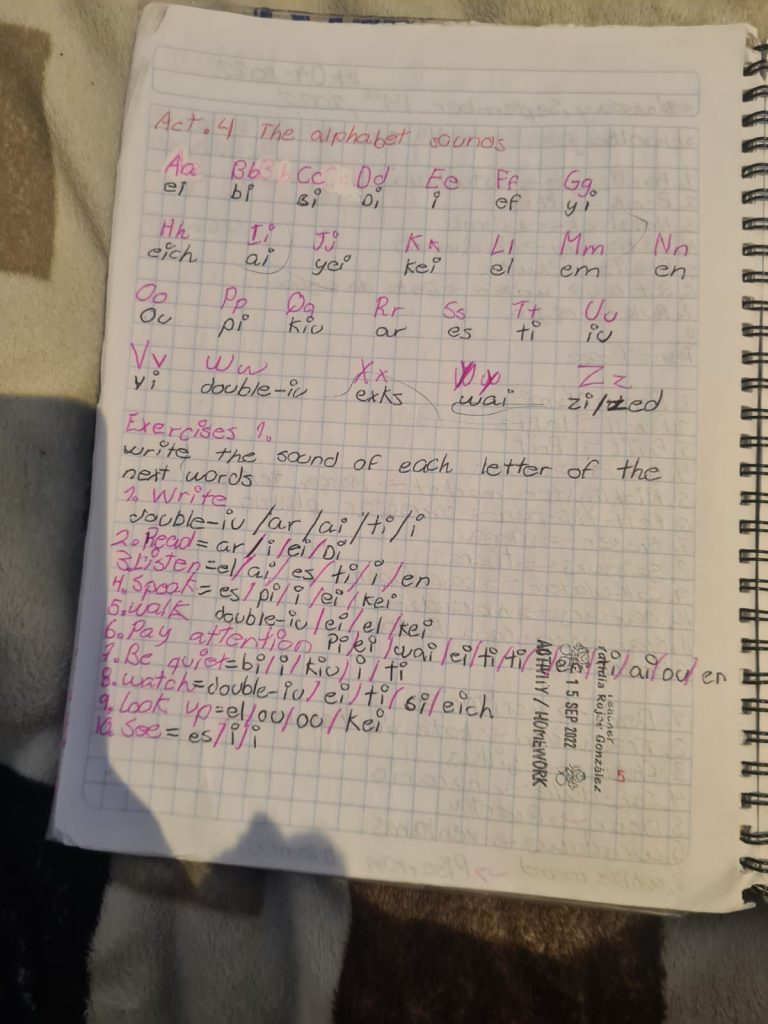 Act. 4 The alphabet sounds
Aa Bb Cc Dd Ee Ff Gg
ei bi si Di i ef yi
Hh Ii Jj Kk Ll Mm Nn
eich ai yei kei el em en
Oo Pp Qq Rr Ss Tt Uu
ou pi kiu ar es ti iu
Vv Ww Xx Yy Zz
vi double-iu exks wai zi/zed
Exercises 1.
write the sound of each letter of the
next words
1. Write
double-iu /ar/ai/ti/i
2. Read = ar/i/ei/Di
3. Listen = el/ai/es/ti/i/en
4. Speak = es/pi/i/ei/kei
5. Walk double-iu/ei/el/kei
6. Pay attention pi/ei/wai/ei/ti/ti/ /en/ti/ai/ou/en
7. Be quiet = bi/i/kiu/i/ti
8. watch = double-iu/ei/ti/si/eich
9. Look up = el/ou/ou/kei
10. See = es/i/i
Teacher
Rojas González
15 SEP 2022
ACTIVITY / HOMEWORK
5